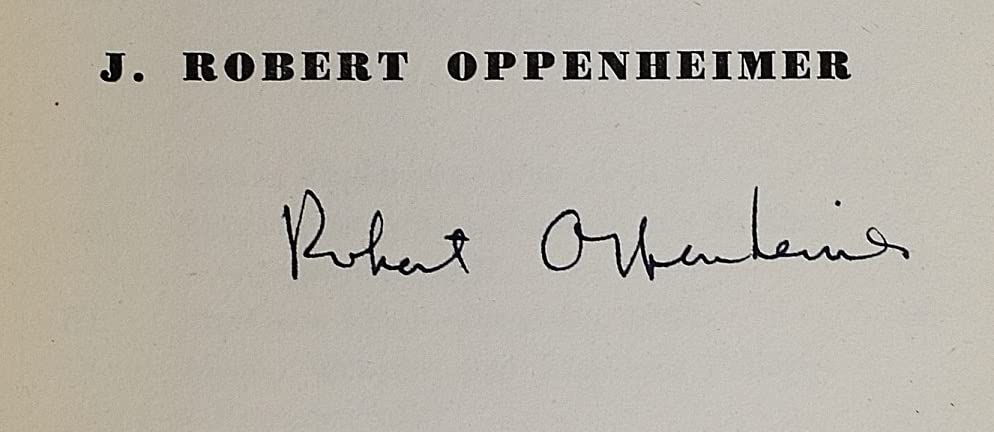 J. ROBERT OPPENHEIMER
Robert Oppenheimer